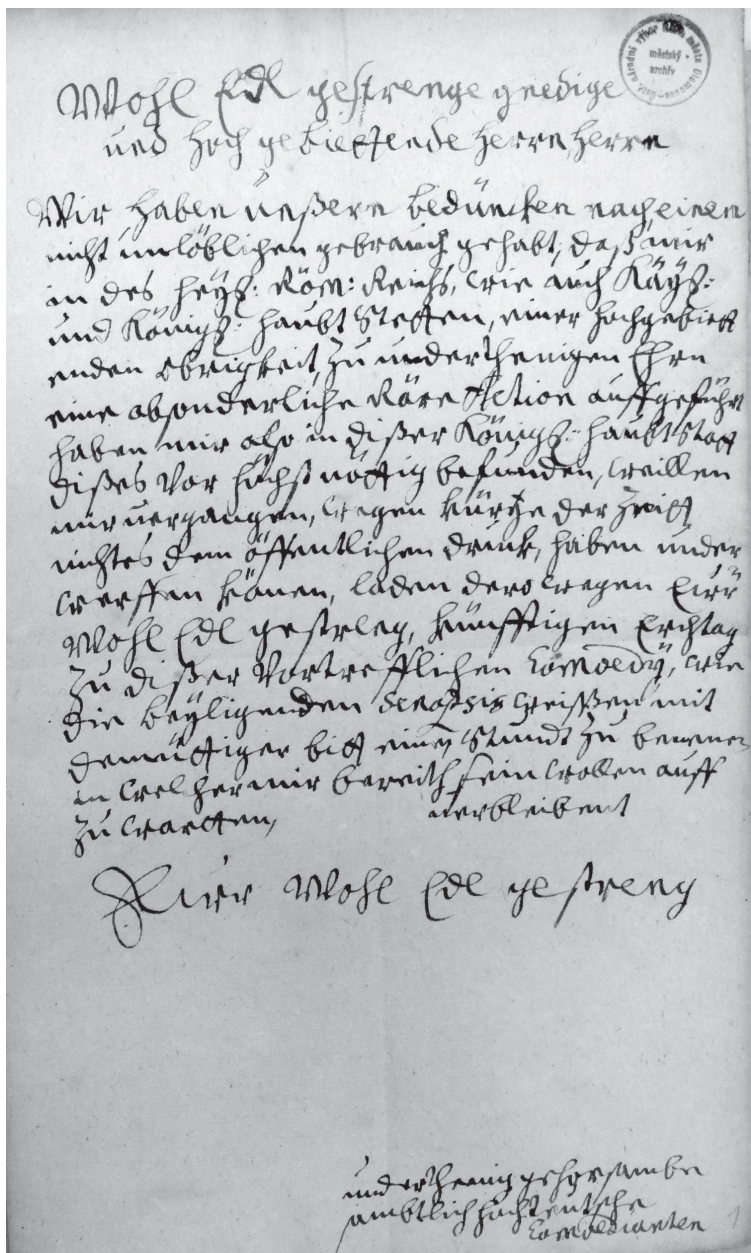 národní výbor města Olomouc
městský
archiv
Wohl Edl gestrenge gnedige
und Hoch gebiettende Herrn, Herrn
Wir haben unßern bedüncken nach einen
nicht unlöblichen gebrauch gehabt, daß mir
in des Heyl: Röm: Reichs, wie auch Käyß:
und Königl: Haubt Stetten, einer hochgebiett
enden obrigkeit, zu underthenigen Ehrn
eine absonderliche Räre Action auffgeführt
haben mir also in dißer Königl: Haubt Statt
dißes vor höchst nöttig befunden, weillen
mir vergangen, wegen kürtze der Zeitt
nichtes dem öffentlichen druck, haben under
werffen könen, laden dero wegen Eurr
Wohl Edl gestreng, künfftigen Erchtag
zu dißer vortrefflichen Comoedÿ, wie
die beÿligenden Senopsis weißen mit
demüttiger bitt einen Stundt zu benenen
in welcher mir bereith sein wollen auff
zu wartten, verbleibent
Eurr Wohl Edl gestreng
underthenig gehorsambe
ambtlich hochteütsche
Comoedianten
1